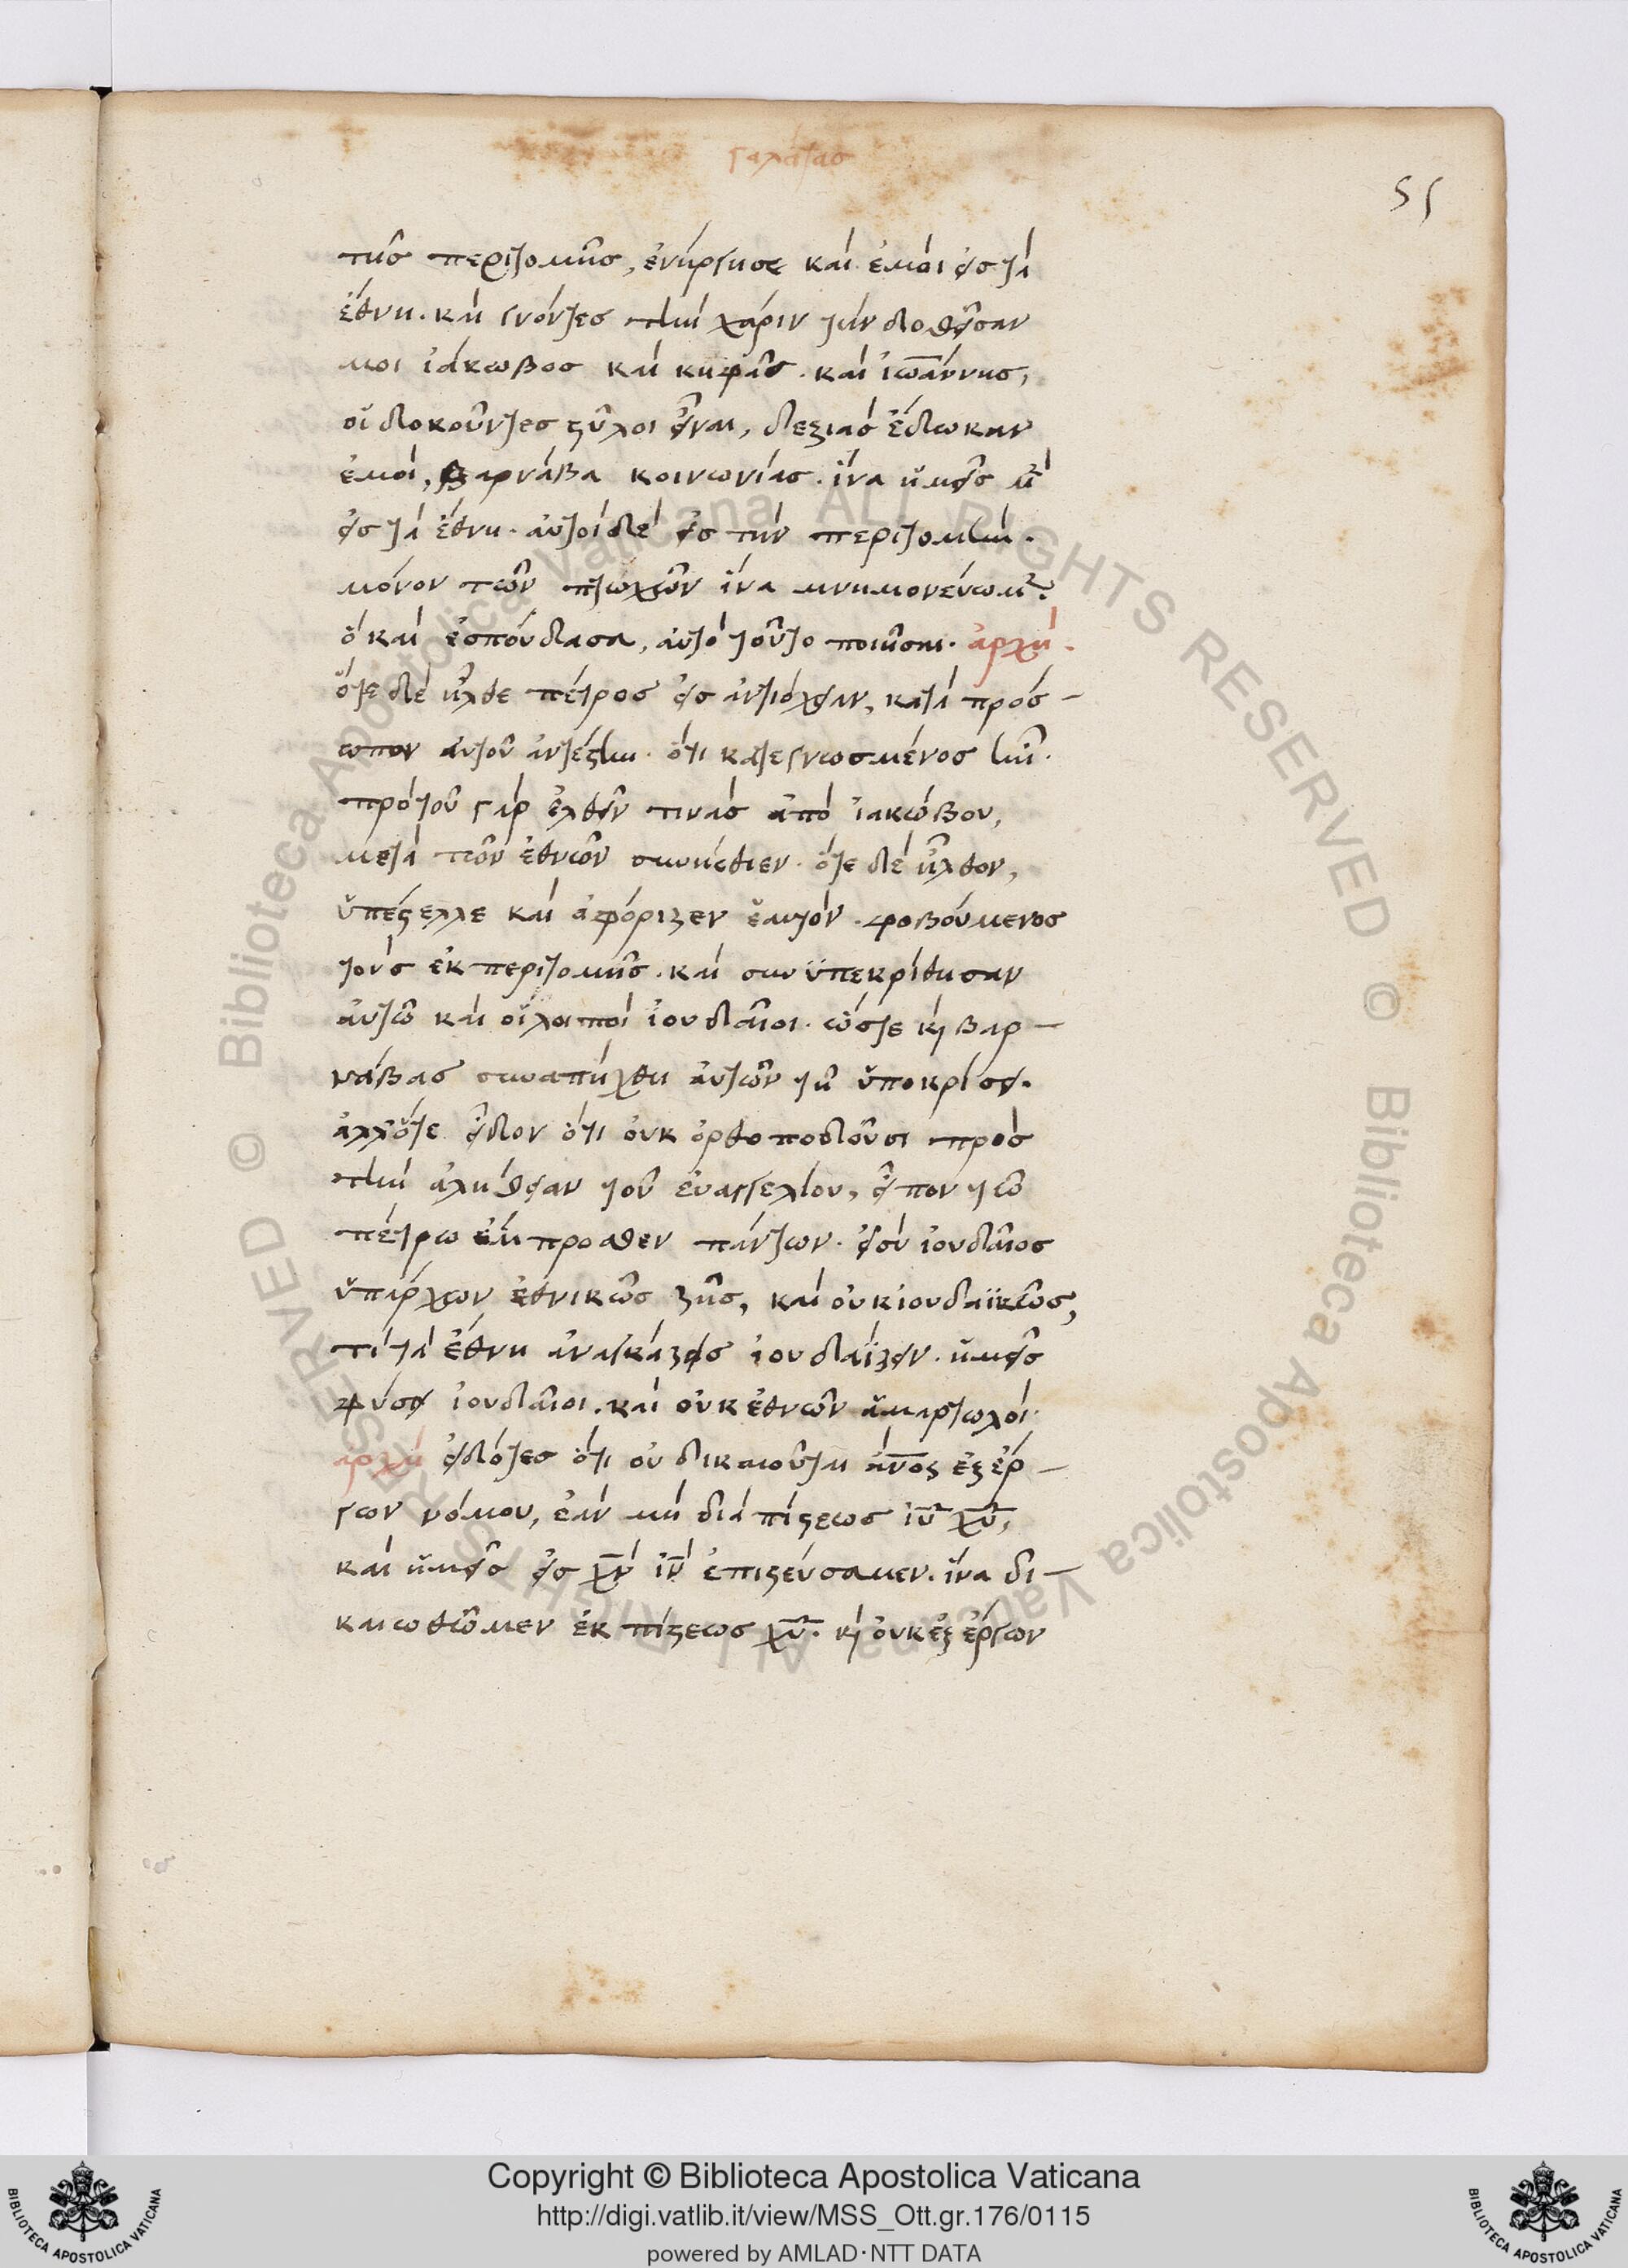 γαλάτας
55
τῆς περιτομῆς, ἐνήργησε καὶ ἐμοὶ εἰς τὰ
ἔθνη. καὶ γνόντες τὴν χάριν τὴν δοθεῖσαν
μοι ἰάκωβος καὶ κηφᾶς. καὶ ἰωάννης,
οἱ δοκοῦντες στῦλοι εἶναι, δεξιὰς ἔδωκαν
ἐμοὶ, βαρνάβα κοινωνίας. ἵνα ἡμεῖς μὲν
εἰς τὰ ἔθνη. αὐτοὶ δὲ εἰς τὴν περιτομήν.
μόνον τῶν πτωχῶν ἵνα μνημονεύωμεν.
ὃ καὶ ἐσπούδασα, αὐτὸ τοῦτο ποιῆσαι. ἀρχὴ.
ὅτε δὲ ἦλθε πέτρος εἰς ἀντιόχειαν, κατὰ πρόσ-
ωπον αὐτοῦ ἀντέστην. ὅτι κατεγνωσμένος ἦν.
πρὸ τοῦ γὰρ ἐλθεῖν τινὰς ἀπὸ ἰακώβου,
μετὰ τῶν ἐθνῶν συνήσθιεν. ὅτε δὲ ἦλθον,
ὑπέστελλε καὶ ἀφόριζεν ἑαυτόν. φοβούμενος
τοὺς ἐκ περιτομῆς. καὶ συνϋπεκρίθησαν
αὐτῶ καὶ οἱ λοιποὶ ἰουδαῖοι. ὥστε κὶ βαρ-
νάβας συναπήχθη αὐτῶν τῆ ὑποκρίσει.
ἀλλ' ὅτε εἶδον ὅτι οὐκ ὀρθοποδοῦσι πρὸς
τὴν ἀλήθειαν τοῦ εὐαγγελίου, εἶπον τῶ
πέτρω ἔμπροσθεν πάντων. εἰ σὺ ἰουδαῖος
ὑπάρχων ἐθνικῶς ζῆς, καὶ οὐκ ἰουδαϊκῶς,
τί τὰ ἔθνη ἀναγκάζεις ἰουδαΐζειν. ἡμεῖς
φύσει ἰουδαῖοι. καὶ οὐκ ἐθνῶν ἁμαρτωλοί.
ἀρχὴ εἰδότες ὅτι οὐ δικαιοῦται ἄνος ἐξ ἔρ-
γων νόμου, ἐὰν μὴ διὰ πίστεως ἰῦ χῦ,
καὶ ἡμεῖς εἰς χν ἰν ἐπιστεύσαμεν. ἵνα δι-
καιωθῶμεν ἐκ πίστεως χῦ. κὶ οὐκ ἐξ ἔργων
© Biblioteca Apostolica Vaticana ALL RIGHTS RESERVED © Biblioteca Apostolica Vaticana ALL RIGHTS RESERVED
Copyright © Biblioteca Apostolica Vaticana
http://digi.vatlib.it/view/MSS_Ott.gr.176/0115
powered by AMLAD·NTT DATA
BIBLIOTECA APOSTOLICA VATICANA
BIBLIOTECA APOSTOLICA VATICANA